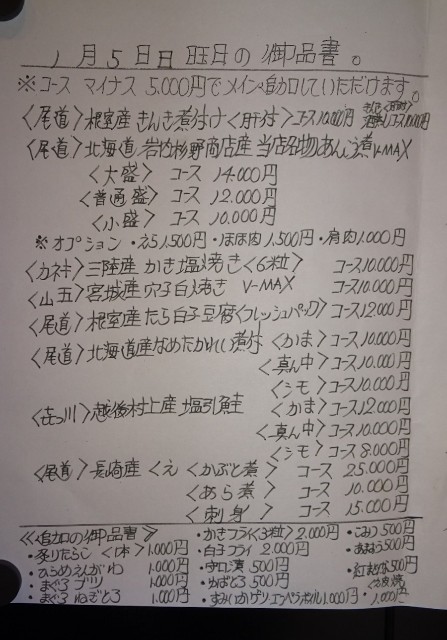 1月5日日曜日の御品書。
※コース マイナス 5.000円でメイン追加していただけます。
〈尾道〉根室産 きんき煮付け〈肝付〉コース10.000円
〈尾道〉北海道 岩内杉野商店産 当店名物あんこう煮 V-MAX
〈大盛〉 コース 14.000円
〈普通盛〉 コース 12.000円
〈小盛〉 コース 10.000円
※オプション ・えら1.500円 ・ほほ肉1.500円 ・肩肉1.000円
〈カネキ〉三陸産 かき塩焼き〈6粒〉 コース10.000円
〈山五〉宮城産 穴子白焼き V-MAX コース10.000円
〈尾道〉根室産たら白子豆腐〈フレッシュパック〉コース12.000円
〈尾道〉北海道産なめたかれい煮付 〈かま〉コース10.000円
〈真ん中〉コース10.000円
〈シモ〉コース10.000円
〈㐂っ川〉越後村上産 塩引鮭 〈かま〉コース12.000円
〈真ん中〉コース10.000円
〈シモ〉コース8.000円
〈尾道〉長崎産 くえ 〈かぶと煮〉 コース 25.000円
〈あら煮〉 コース 10.000円
〈刺身〉 コース 15.000円
《追加の御品書》
・炙りたらこ〈1本〉1.000円
・ひらめえんがわ 1.000円
・まぐろブツ 1.000円
・まぐろ ねぎとろ 1.000円
・かきフライ〈3粒〉2.000円
・白子フライ 2.000円
・守口漬 500円
・ゆばとろ 500円
・すみいかゲソエンペラボイル1.000円
・こみつ500円
・あまおう500円
・紅まどか500円